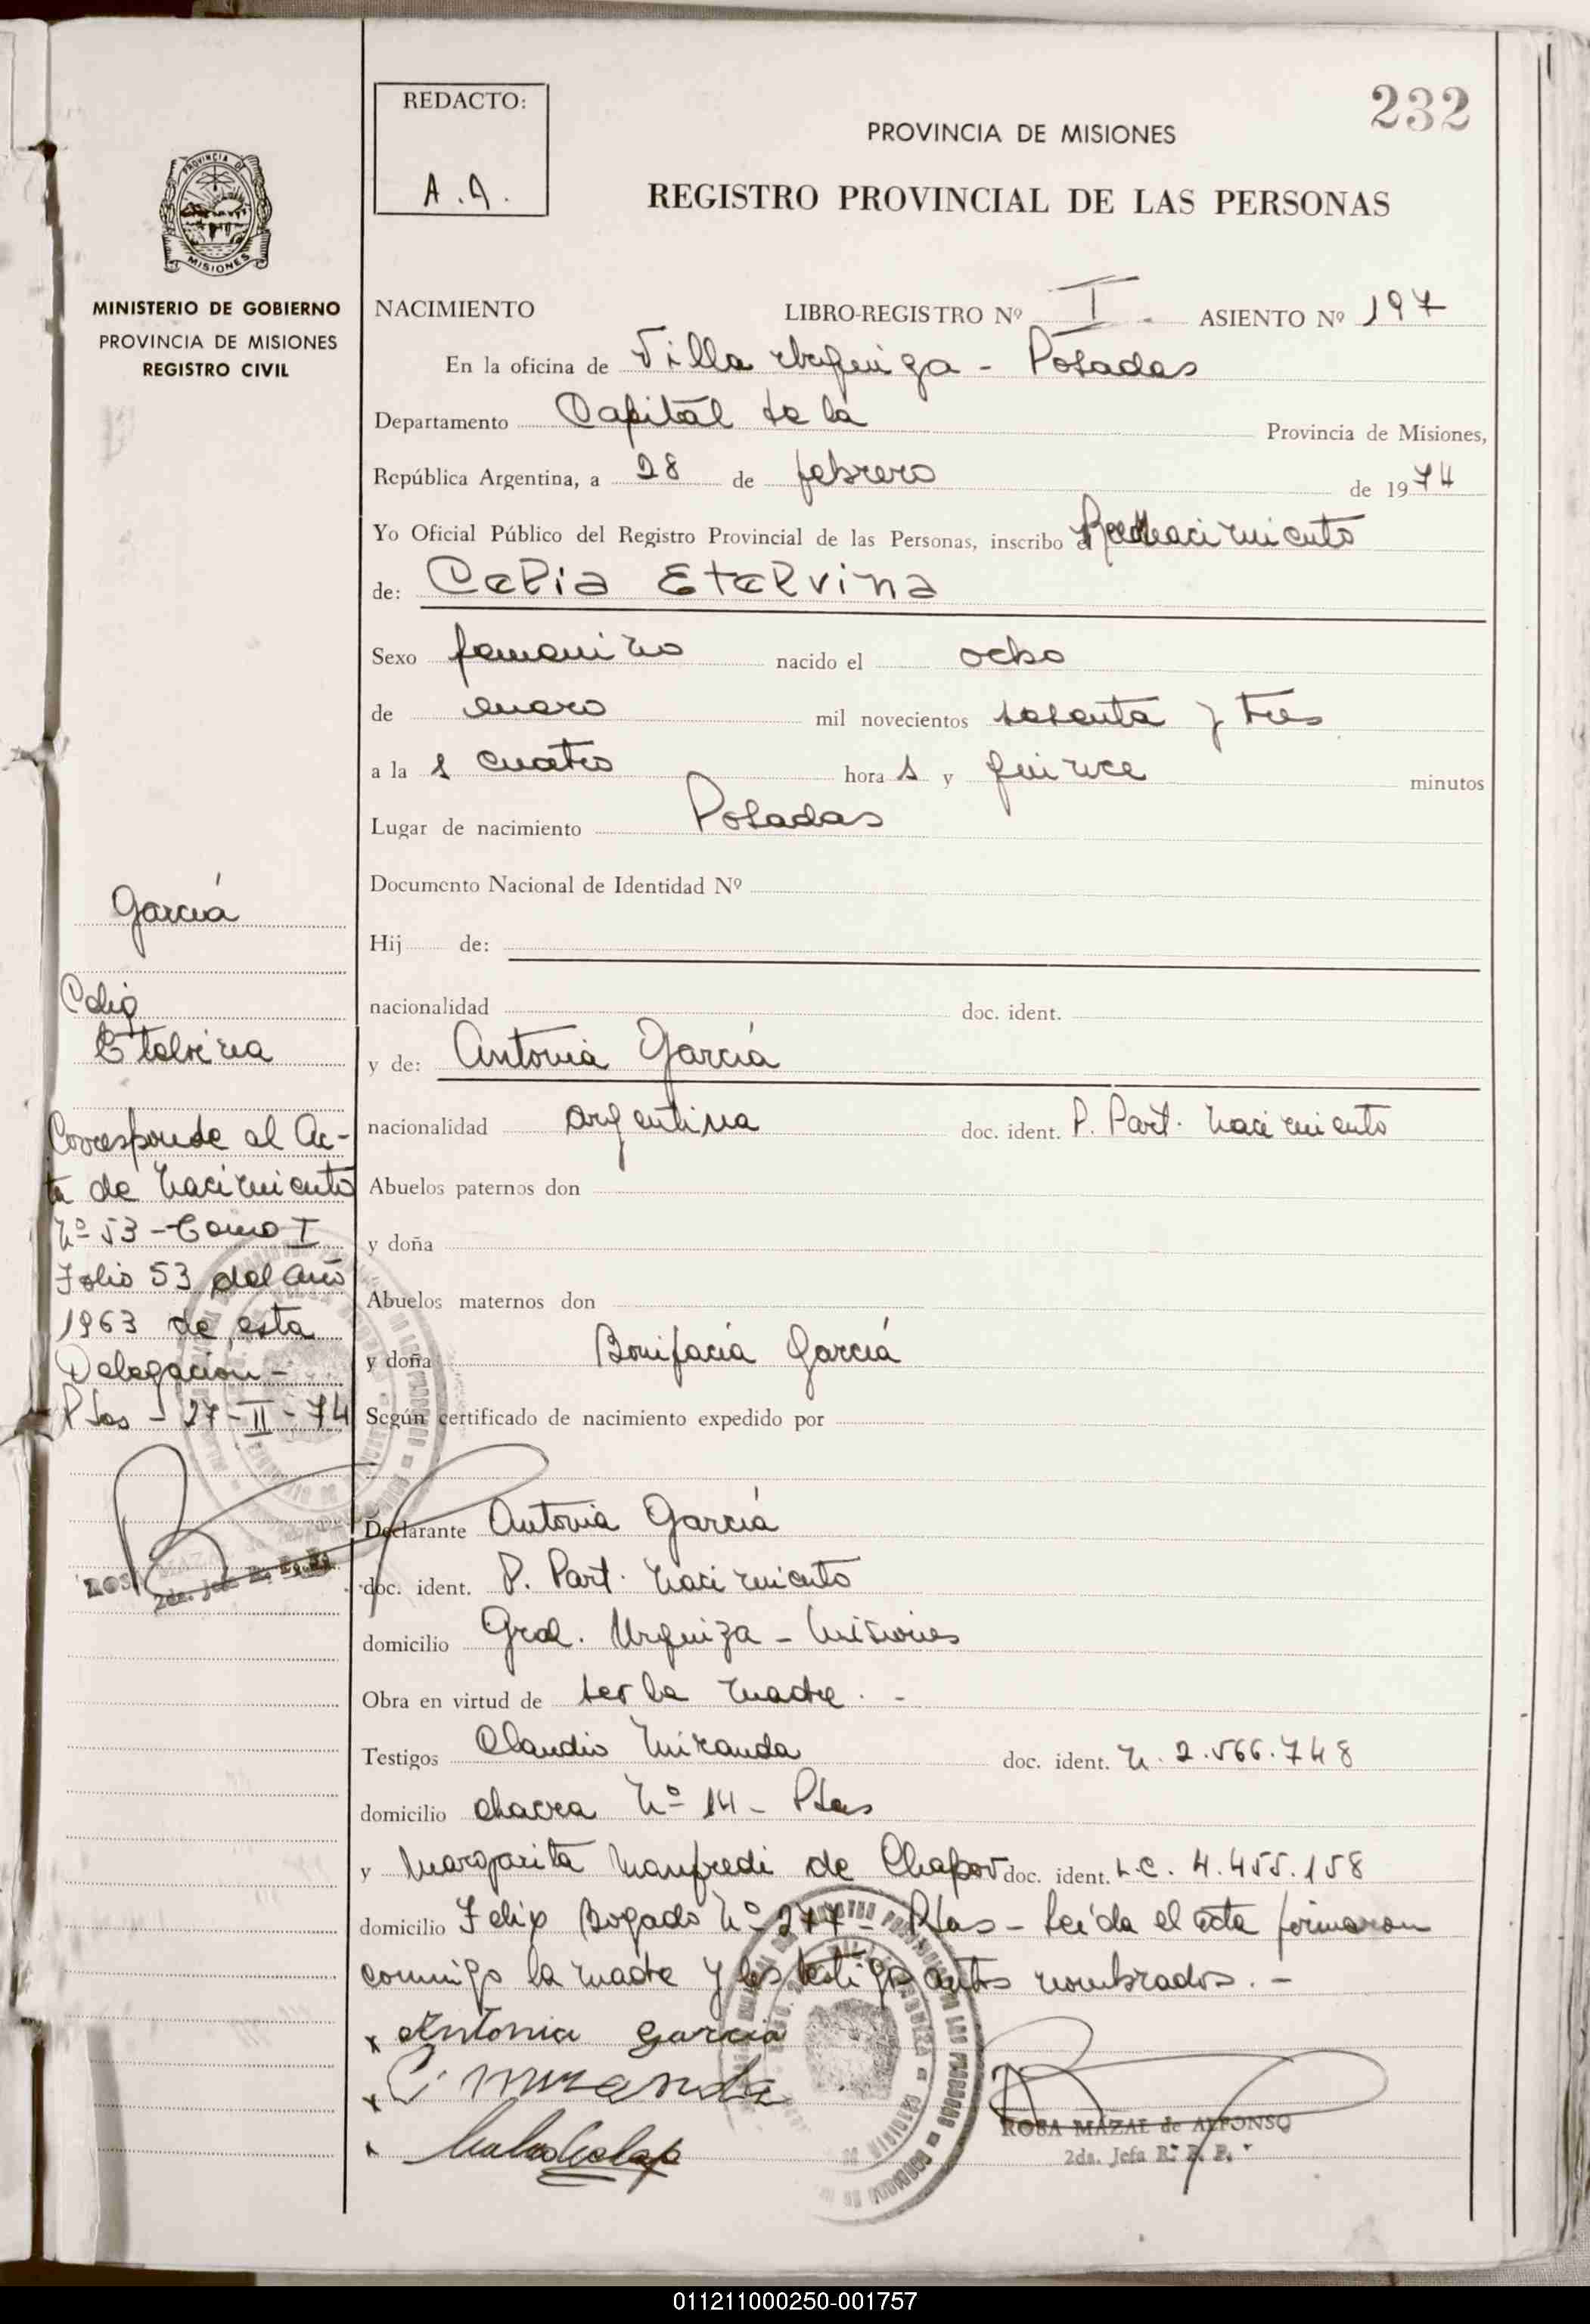 REDACTO:
A.A.
232
PROVINCIA DE MISIONES
REGISTRO PROVINCIAL DE LAS PERSONAS
PROVINCIA DE MISIONES
MINISTERIO DE GOBIERNO
PROVINCIA DE MISIONES
REGISTRO CIVIL
NACIMIENTO LIBRO-REGISTRO Nº I - ASIENTO Nº 197
En la oficina de Villa Urquiza - Posadas
Departamento Capital de la Provincia de Misiones,
República Argentina, a 28 de febrero de 1974
Yo Oficial Público del Registro Provincial de las Personas, inscribo el
de: Celia Etelvina
Sexo femenino nacido el ocho
de enero mil novecientos sesenta y tres
a la s cuatro hora s y quince minutos
Lugar de nacimiento Posadas
Documento Nacional de Identidad Nº
Hij de:
nacionalidad doc. ident.
y de: Antonia García
nacionalidad argentina doc. ident. P. Part. Nacimiento
Abuelos paternos don
y doña
Abuelos maternos don
y doña Bonifacia García
Según certificado de nacimiento expedido por
Declarante Antonia García
doc. ident. P. Part. Nacimiento
domicilio Gral. Urquiza - Misiones
Obra en virtud de ser la madre. -
Testigos Claudio Miranda doc. ident. M. 2.566.748
domicilio chacra Nº 14 - Pdas
y Margarita Manfredi de doc. ident. L.C. 4.455.158
domicilio Felix Bogado Nº 277 - Pdas - Leída el acta firmaron
conmigo la madre y los testigos antes nombrados. -
x Antonia Garcia
x C. Miranda
x
ROSA MAZAL de ALFONSO
2da. Jefa R. P. P.
García
Celia
Etelvina
Corresponde al Ac-
ta de Nacimiento
Nº 53 - Tomo I
Folio 53 del Año
1963 de esta
Delegación -
Pdas - 27-II-74
2da. Jefa R. P. P.
011211000250-001757